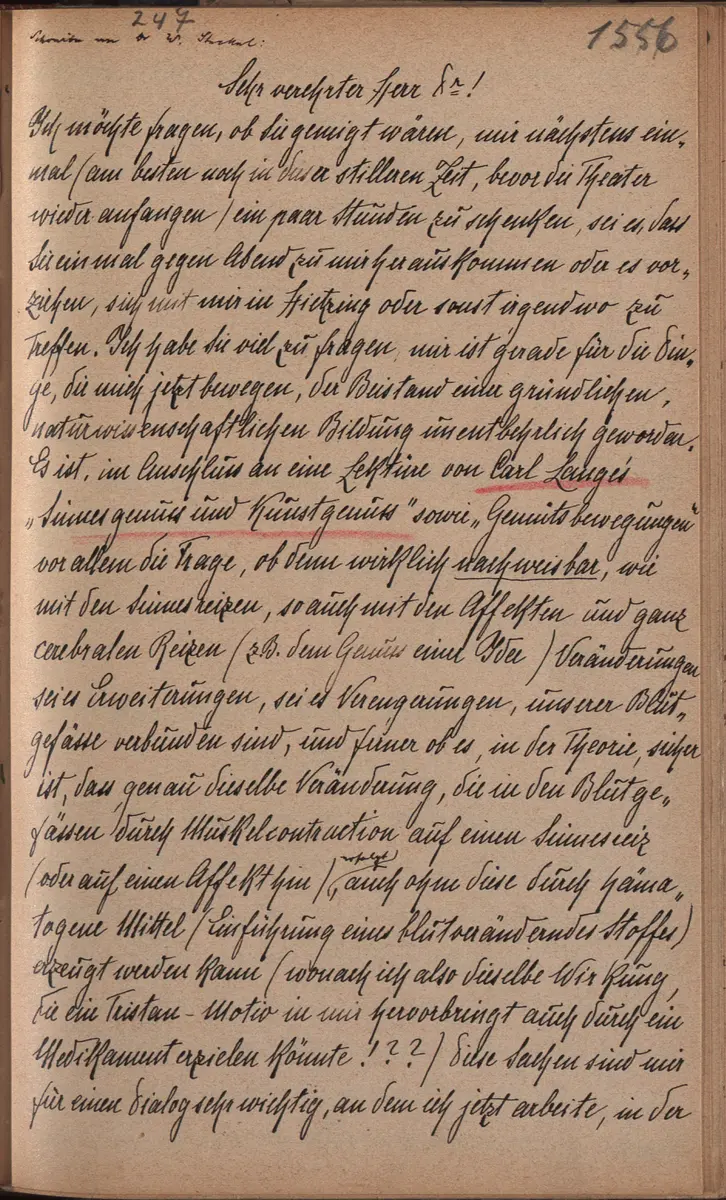 247
1556
Schreiben von Dr W. Stekel:
Sehr verehrter Herr Dr!
Ich möchte fragen, ob Sie geneigt wären, mir nächstens ein„
mal (am besten noch in dieser stilleren Zeit, bevor die Theater
wieder anfangen) ein paar Stunden zu schenken, sei es, dass
Sie einmal gegen Abend zu mir herauskommen oder es vor„
ziehen, sich mit mir in Hietzing oder sonst irgendwo zu
treffen. Ich habe Sie viel zu fragen, mir ist gerade für die Din„
ge, die mich jetzt bewegen, der Beistand einer gründlichen,
naturwissenschaftlichen Bildung unentbehrlich geworden.
Es ist, im Anschluss an eine Lektüre von Carl Lange's
„Sinnesgenuss und Kunstgenuss" sowie „Gemütsbewegungen"
vor allem die Frage, ob denn wirklich nachweisbar, wie
mit den Sinnesreizen, so auch mit den Affekten und ganz
cerebralen Reizen (z.B. dem Genuss einer Idee) Veränderungen
sei es Erweiterungen, sei es Verengerungen, unserer Blut„
gefässe verbunden sind, und ferner ob es, in der Theorie, sicher
ist, dass genau dieselbe Veränderung, die in den Blutge„
fässen durch Muskelcontraction auf einen Sinnesreiz
(oder auf einen Affekt hin) erfolgt, auch ohne diese durch häma„
togene Mittel (Einführung eines blutveränderndes Stoffes)
erzeugt werden kann (wonach ich also dieselbe Wirkung,
die ein Tristan-Motiv in mir hervorbringt auch durch ein
Medikament erzielen könnte!??) Diese Sachen sind mir
für einen Dialog sehr wichtig, an dem ich jetzt arbeite, in der